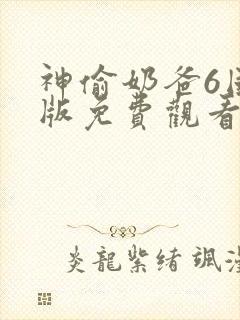 神偷奶爸6
版免費觀看
炎龍紫緒 颯漫